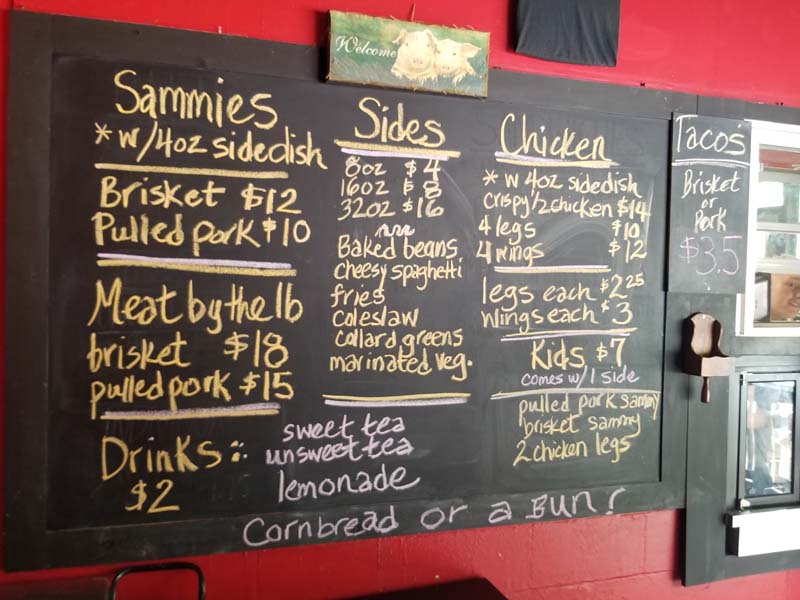 Welcome
Sammies
* w/4oz sidedish
Brisket $12
Pulled pork $10
Meat by the lb
brisket $18
pulled pork $15
Drinks:
$2
sweet tea
unsweet tea
lemonade
Sides
8oz $4
16oz $8
32oz $16
Baked beans
cheesy spaghetti
fries
coleslaw
collard greens
marinated veg.
Chicken
* w 4oz sidedish
crispy 1/2 chicken $14
4 legs $10
4 wings $12
legs each $2 25
wings each $3
Kids $7
comes w/1 side
pulled pork sammy
brisket sammy
2 chicken legs
Cornbread or a Bun!
Tacos
Brisket
or
Pork
$3.5